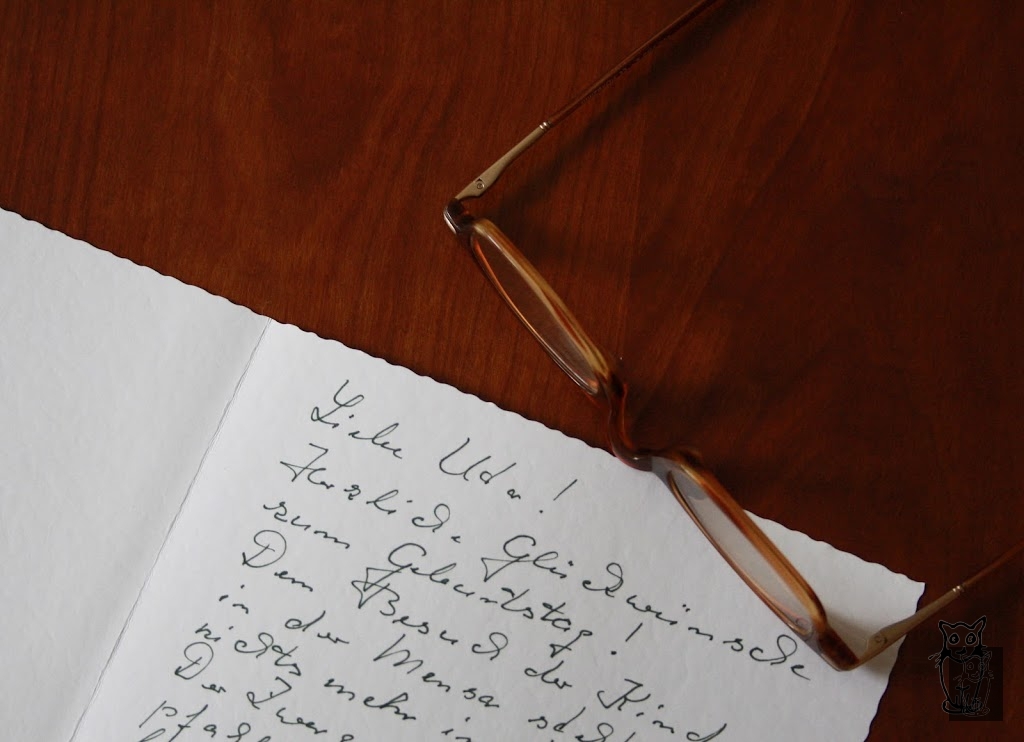 Lieber Udo!
Herzliche Glückwünsche
zum Geburtstag!
Dem Besuch der Kind
in der Mensa steht
nichts mehr in
Der Zwerg